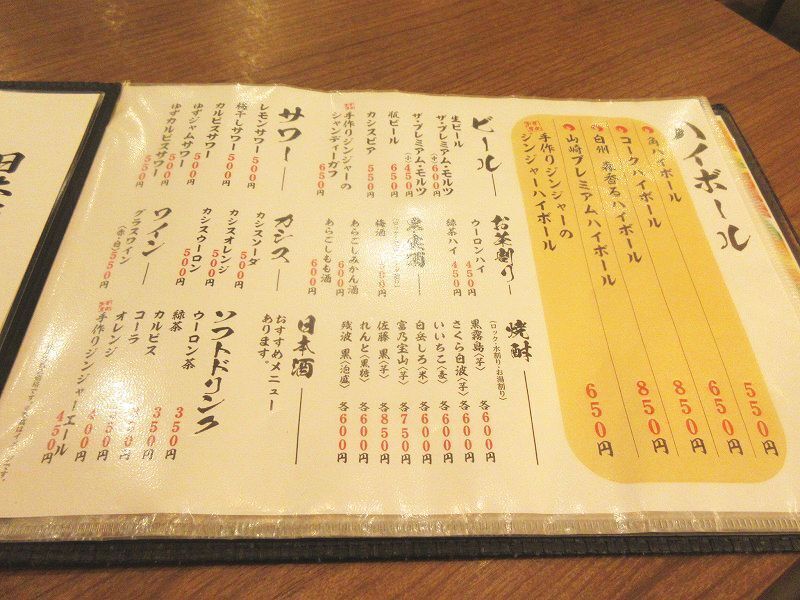 ハイボール
角ハイボール 550円
コークハイボール 650円
白州 森香るハイボール 850円
山崎プレミアムハイボール 850円
手作りジンジャーの
ジンジャーハイボール 650円
ビール
生ビール
ザ・プレミアム・モルツ
(中)600円
ザ・プレミアム・モルツ
(小)450円
瓶ビール 650円
カシスビア 550円
手作りジンジャーの
シャンディーガフ 650円
サワー
レモンサワー 500円
梅干しサワー 500円
カルピスサワー 500円
ゆずジャムサワー 500円
ゆずカルピスサワー 550円
お茶割り
ウーロンハイ 450円
緑茶ハイ 450円
果実酒
梅酒
あらごしみかん酒 600円
あらごしもも酒 600円
カシス
カシスソーダ 500円
カシスオレンジ 500円
カシスウーロン 500円
ワイン
グラスワイン
(赤・白)550円
焼酎
(ロック・水割り・お湯割り)
黒霧島(芋) 各600円
さくら白波(芋) 各600円
いいちこ(麦) 各600円
白岳しろ(米) 各600円
富乃宝山(芋) 各750円
佐藤 黒(芋) 各850円
れんと(黒糖) 各600円
残波 黒(泡盛) 各600円
日本酒
おすすめメニュー
あります。
ソフトドリンク
ウーロン茶 350円
緑茶 350円
カルピス 350円
コーラ
オレンジ 400円
手作りジンジャーエール 450円